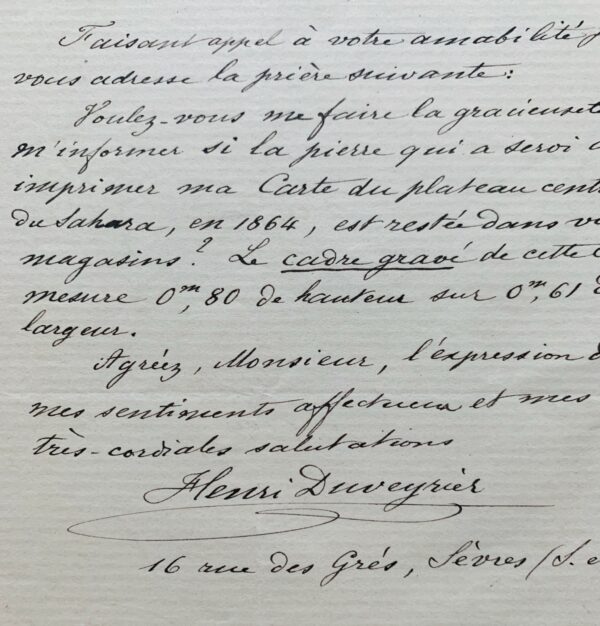 Faisant appel à votre amabilité j
vous adresse la prière suivante :
Voulez-vous me faire la gracieuseté
m'informer si la pierre qui a servi à
imprimer ma Carte du plateau cent
du Sahara, en 1864, est restée dans v
magasins ? Le cadre gravé de cette c
mesure 0m,80 de hauteur sur 0m,61 d
largeur.
Agréez, Monsieur, l'expression d
mes sentiments affectueux et mes
très-cordiales salutations
Henri Duveyrier
16 rue des Grés, Sèvres (S. e